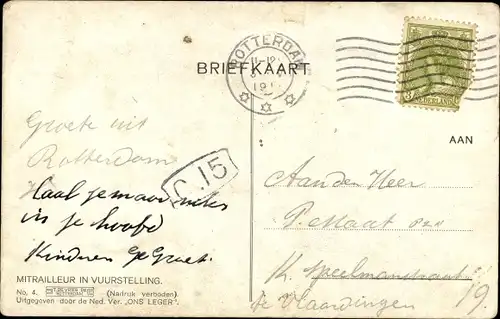 BRIEFKAART
ROTTERDAM
11-12
19
NEDERLAND
AAN
Groete uit
Rotterdam
C.15
Haal je maar niks
in je hoofd
Kinderen Gegroet.
Aan den Heer
P. Maat Pzn
K. Speelmanstraat 19.
te Vlaardingen
MITRAILLEUR IN VUURSTELLING.
No. 4. (Nadruk verboden).
Uitgegeven door de Ned. Ver. „ONS LEGER”.